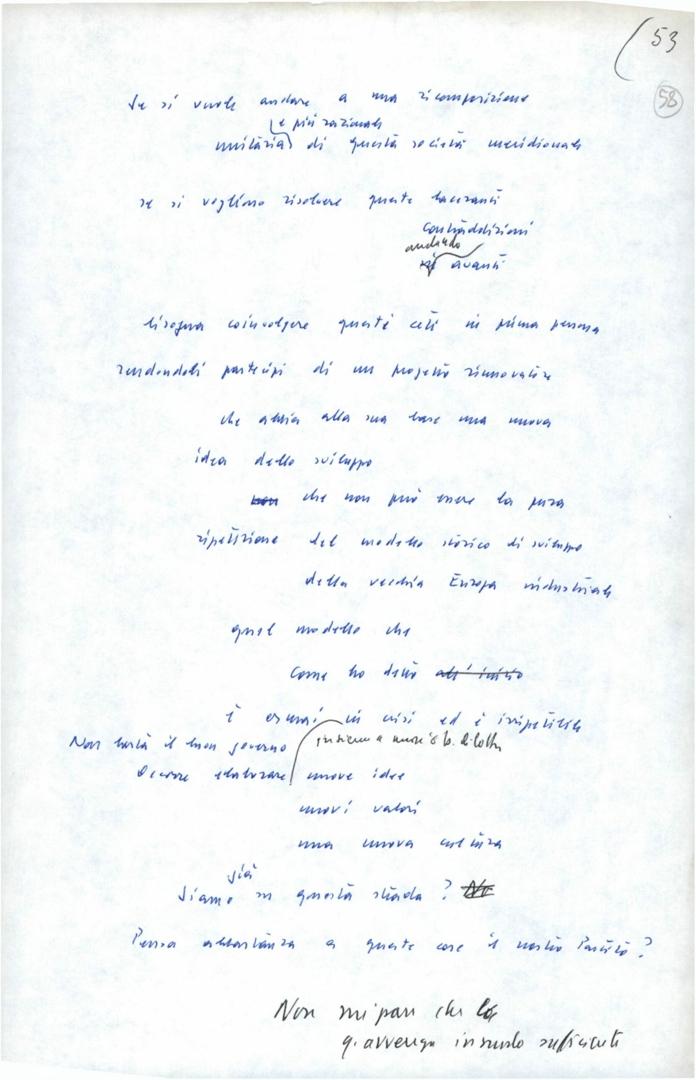 53
58
Se si vuole andare a una ricomposizione
e più razionale
unitaria di questa società meridionale
se si vogliono risolvere queste laceranti
contraddizioni
andando
avanti
bisogna coinvolgere questi ceti in prima persona
rendendoli partecipi di un progetto rinnovatore
che abbia alla sua base una nuova
idea dello sviluppo
non che non può essere la pura
ripetizione del modello storico di sviluppo
della vecchia Europa industriale
quel modello che
come ho detto all'inizio
è ormai in crisi ed è irripetibile
Non basta il buon governo
insieme a nuove b. di lotta
Occorre elaborare nuove idee
nuovi valori
una nuova cultura
già
Siamo su questa strada? No
Pensa abbastanza a queste cose il nostro Partito?
Non mi pare che
q. avvenga in modo sufficiente